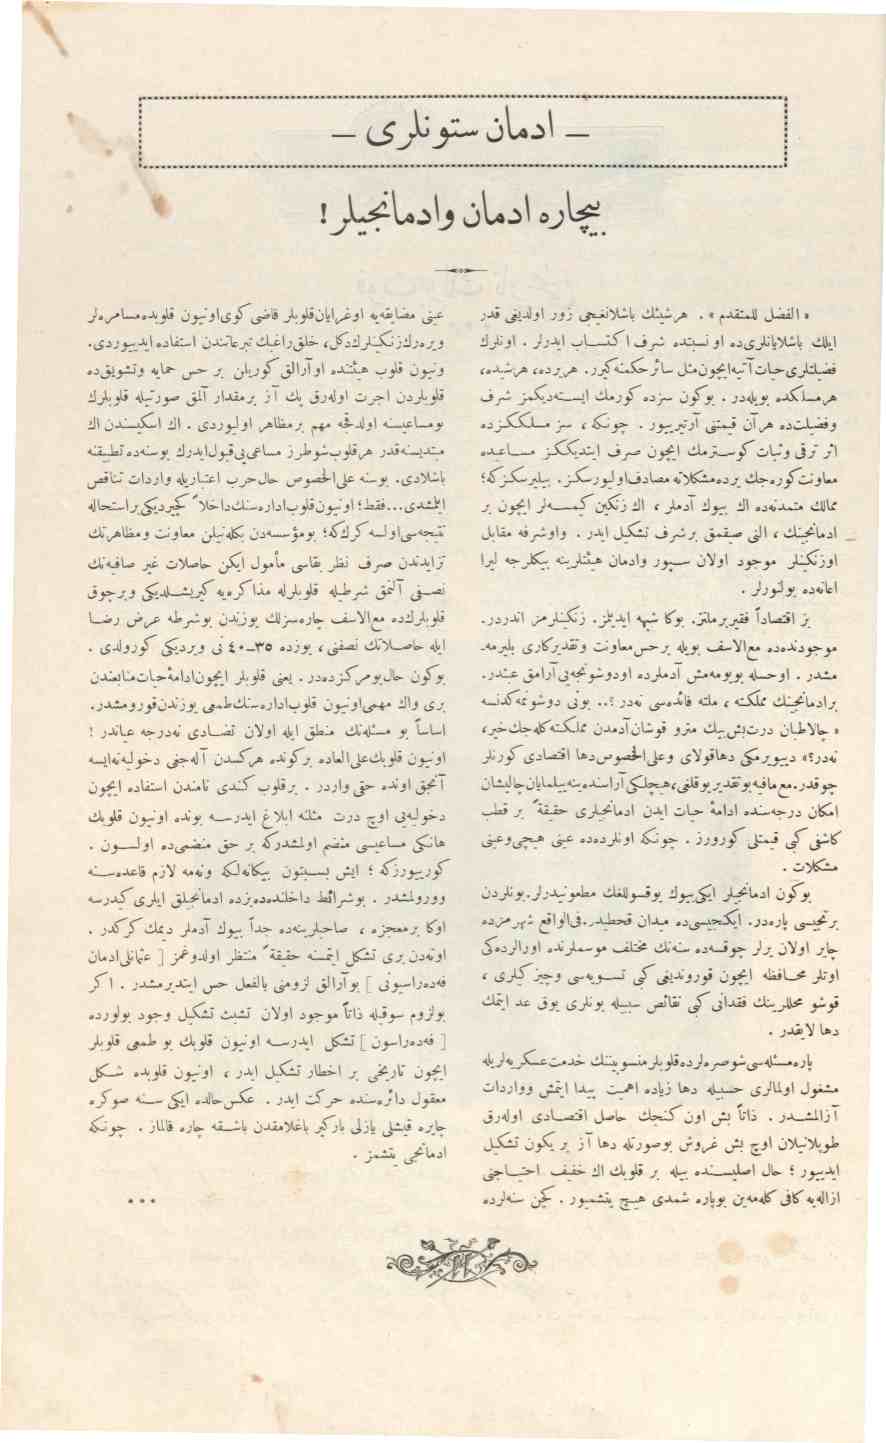 — ادمان ستونلری —
بیچاره ادمان وادمانجیلر !
« الفضل للمتقدم » . هرشیئك باشلانغیجی زور اولدیغی قدر
ایلك باشلایانلری‌ده او نسبتده شرف اكتساب ایدرلر . اونلرك
فضیلتلری حیات آتیه‌ایچون مثل سائر حكمنه‌كیرر. هربرده، هرشیده،
هرمسلكده بویله‌در . بوكون سزده كورمك ایسته‌دیكمز شرف
وفضیلت‌ده هرآن قیمتنی آرتیرییور . چونكه ، سز مسلككزده
اثر ترقی وثبات كوسترمك ایچون صرف ایتدیككز مساعیده
معاونت‌كوره‌جك یرده‌مشكلاته مصادف‌اولیورسكز. بیلیرسكزكه؛
ممالك متمدنه‌ده اك بیوك آدملر ، اك زنكین كیمسه‌لر ایچون بر
ادمانجینك ، النی صیقمق برشرف تشكیل ایدر . واوشرفه مقابل
اوزنكینلر موجود اولان سپور وادمان هیئتلرینه بیكلرجه لیرا
اعانه‌ده بولنورلر .
بز اقتصاداً فقیربرملتز. بوكا شبهه ایدیلمز. زنكینلرمز اندردر.
موجودنده‌ده مع‌الاسف بویله برحس معاونت وتقدیركاری بلیرمه‌ـ
مشدر . اوحسله بویومه‌مش آدملرده اودوشونجه‌یی‌آرامق عبثدر.
برادمانجینك مملكته ، ملته فائده‌سی نه‌در ؟.. بونی دوشونمه‌كدنسه
« چالاطبان درت‌بش‌بیك مترو قوشان‌آدمدن مملكته‌كله‌جك‌خیر،
نه‌در؟» دییویرمكی دهاقولای وعلی‌الخصوص‌دها اقتصادی كورنلر
چوقدر.مع‌مافیه‌بوتقدیر یوقلغی،هیچلكی‌آراسنده‌ینه‌ییلمایان‌چالیشان
امكان درجه‌سنده ادامهٔ حیات ایدن ادمانجیلری حقیقةً بر قطب
كاشفی كبی قیمتلی كورورز . چونكه اونلرده‌ده عینی هیچی‌وعینی
مشكلات .
بوكون ادمانجیلر ایكی‌بیوك یوقسوللغك مطعونیدرلر.بونلردن
برنجیسی پاره‌در. ایكنجیسی‌ده میدان قحطیدر.فی‌الواقع شهرمزده
چایر اولان یرلر چوقسه‌ده سنه‌نك مختلف موسملرنده اورالرده‌كی
اوتلر محافظه ایچون قوروندیغی كبی تسویه‌سی وچیز كیلری ،
قوشو محللرینك فقدانی كبی نقائص سببیله بونلری یوق عد ایتمك
دها لایقدر .
پاره‌مسئله‌سی شوصره‌لرده‌قلوبلر منسوبیننك خدمت‌عسكریه‌لریله
مشغول اولمالری حسبیله دها زیاده اهمیت پیدا ایتمش وواردات
آزالمشدر . ذاتاً بش اون كنجك حاصل اقتصادی اوله‌رق
طوپلانیلان اوچ بش غروش بوصورتله دها آز بر یكون تشكیل
ایدییور ؛ حال اصلیسنده بیله بر قلوبك اك خفیف احتیاجنی
ازاله‌یه كافی كله‌مه‌ین بوپاره شمدی هیچ یتشمیور . كچن سنه‌لرده
عینی مضایقه‌یه اوغرایان‌قلوبلر قاضی كوی‌اونیون قلوبده‌مسامره‌لر
ویره‌رك‌زنكینلرك‌دكل، خلق‌راغبك تبرعاتندن استفاده ایدییوردی.
ونیون قلوب هیئتنده اوآرالق كوریلن بر حس حمایه وتشویق‌ده
قلوبلردن اجرت اوله‌رق پك آز برمقدار آلمق صورتیله قلوبلرك
بومساعیسنه اولدقجه مهم برمظاهر اولیوردی . اك اسكیسندن اك
مبتدیسنه‌قدر هرقلوب‌شوطرز مساعی‌یی‌قبول‌ایدرك بوسنه‌ده تطبیقنه
باشلادی. بوسنه علی‌الخصوص حال‌حرب اعتباریله واردات تناقص
ایتمشدی...فقط؛ اونیون‌قلوب‌اداره‌سنك‌داخلاً كچیردیكی‌براستحاله
نتیجه‌سی‌اولسه كرك‌كه؛ بومؤسسه‌دن بكله‌نیلن معاونت ومظاهرتك
تزایدندن صرف نظر بقاسی مأمول ایكن حاصلات غیر صافیه‌نك
نصفی آلنمق شرطیله قلوبلرله مذاكره‌یه كیریشلدیكی وبرچوق
قلوبلرك‌ده مع‌الاسف چاره‌سزلك یوزندن بوشرطه عرض رضا
ایله حاصلاتك نصفنی ، یوزده ۳٥-٤۰ نی ویردیكی كورولدی .
بوكون حال‌بومركزده‌در. یعنی قلوبلر ایچون‌ادامهٔ‌حیات‌منابعندن
بری واك مهمی‌اونیون قلوب‌اداره‌سنك‌طمعی یوزندن‌قورومشدر.
اساساً بو مسئله‌نك منطق ایله اولان تضادی نه‌درجه عیاندر !
اونیون قلوبك‌علی‌العاده بركونده هركسدن آله‌جغی دخولیه‌نه‌ایسه
آنجق اونده حقی واردر . برقلوب كندی نامندن استفاده ایچون
دخولیه‌یی اوچ درت مثلنه ابلاغ ایدرسه بونده اونیون قلوبك
هانكی مساعیسی منضم اولمشدركه بر حق منضمی‌ده اولسون .
كورییورزكه ؛ ایش بسبتون بیكانه‌لكه ونه‌مه لازم قاعده‌سنه
وورولمشدر . بوشرائط داخلنده‌ده‌بزده ادمانجیلق ایلری كیدرسه
اوكا برمعجزه ، صاحبلرینه‌ده جداً بیوك آدملر دیمك كركدر .
اوته‌دن بری تشكل ایتمسنه حقیقةً منتظر اولدوغمز [ عثمانلی‌ادمان
فه‌ده‌راسیونی ] بوآرالق لزومنی بالفعل حس ایتدیرمشدر . اكر
بولزوم سوقیله ذاتاً موجود اولان تشبث تشكیل وجود بولورده
[ فه‌ده‌راسون ] تشكل ایدرسه اونیون قلوبك بو طمعی قلوبلر
ایچون تاریخی بر اخطار تشكیل ایدر ، اونیون قلوبده شكل
معقول دائره‌سنده حركت ایدر . عكس‌حالده ایكی سنه صوكره
چایره قیشلی یازلی باركیر باغلامقدن باشقه چاره قالماز . چونكه
ادمانجی یتشمز .
* * *